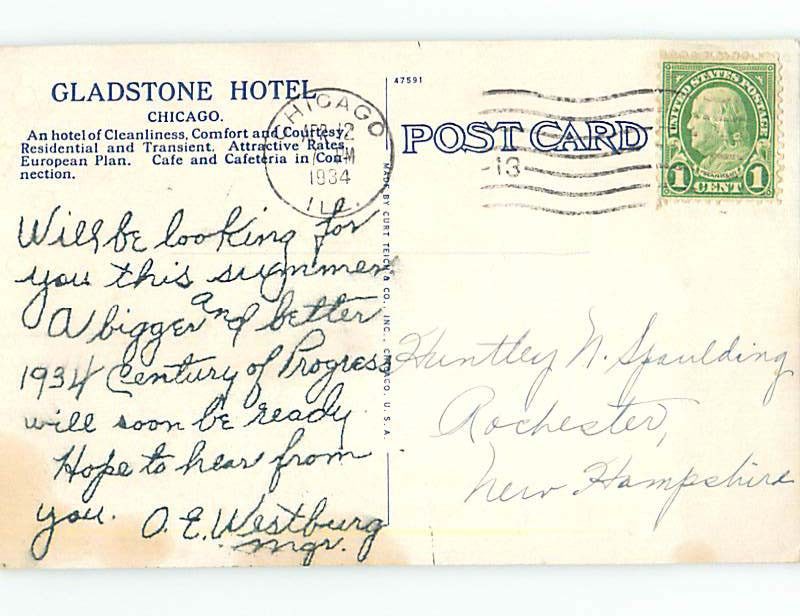 GLADSTONE HOTEL
CHICAGO.
An hotel of Cleanliness, Comfort and Courtesy.
Residential and Transient. Attractive Rates.
European Plan. Cafe and Cafeteria in Con-
nection.
Will be looking for
you this summer
A bigger and better
1934 Century of Progress
will soon be ready
Hope to hear from
you. O. E. Westburg
mgr.
47591
MADE BY CURT TEICH & CO., INC., CHICAGO, U.S.A.
CHICAGO
12
PM
1934
ILL.
POST CARD
-13-
UNITED STATES POSTAGE
FRANKLIN
1 CENT 1
Huntley N. Spaulding
Rochester,
New Hampshire